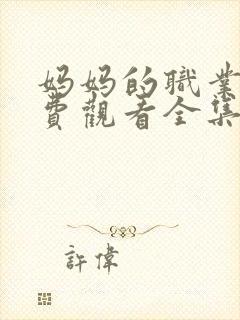 妈妈的職業
費觀看全集
許偉